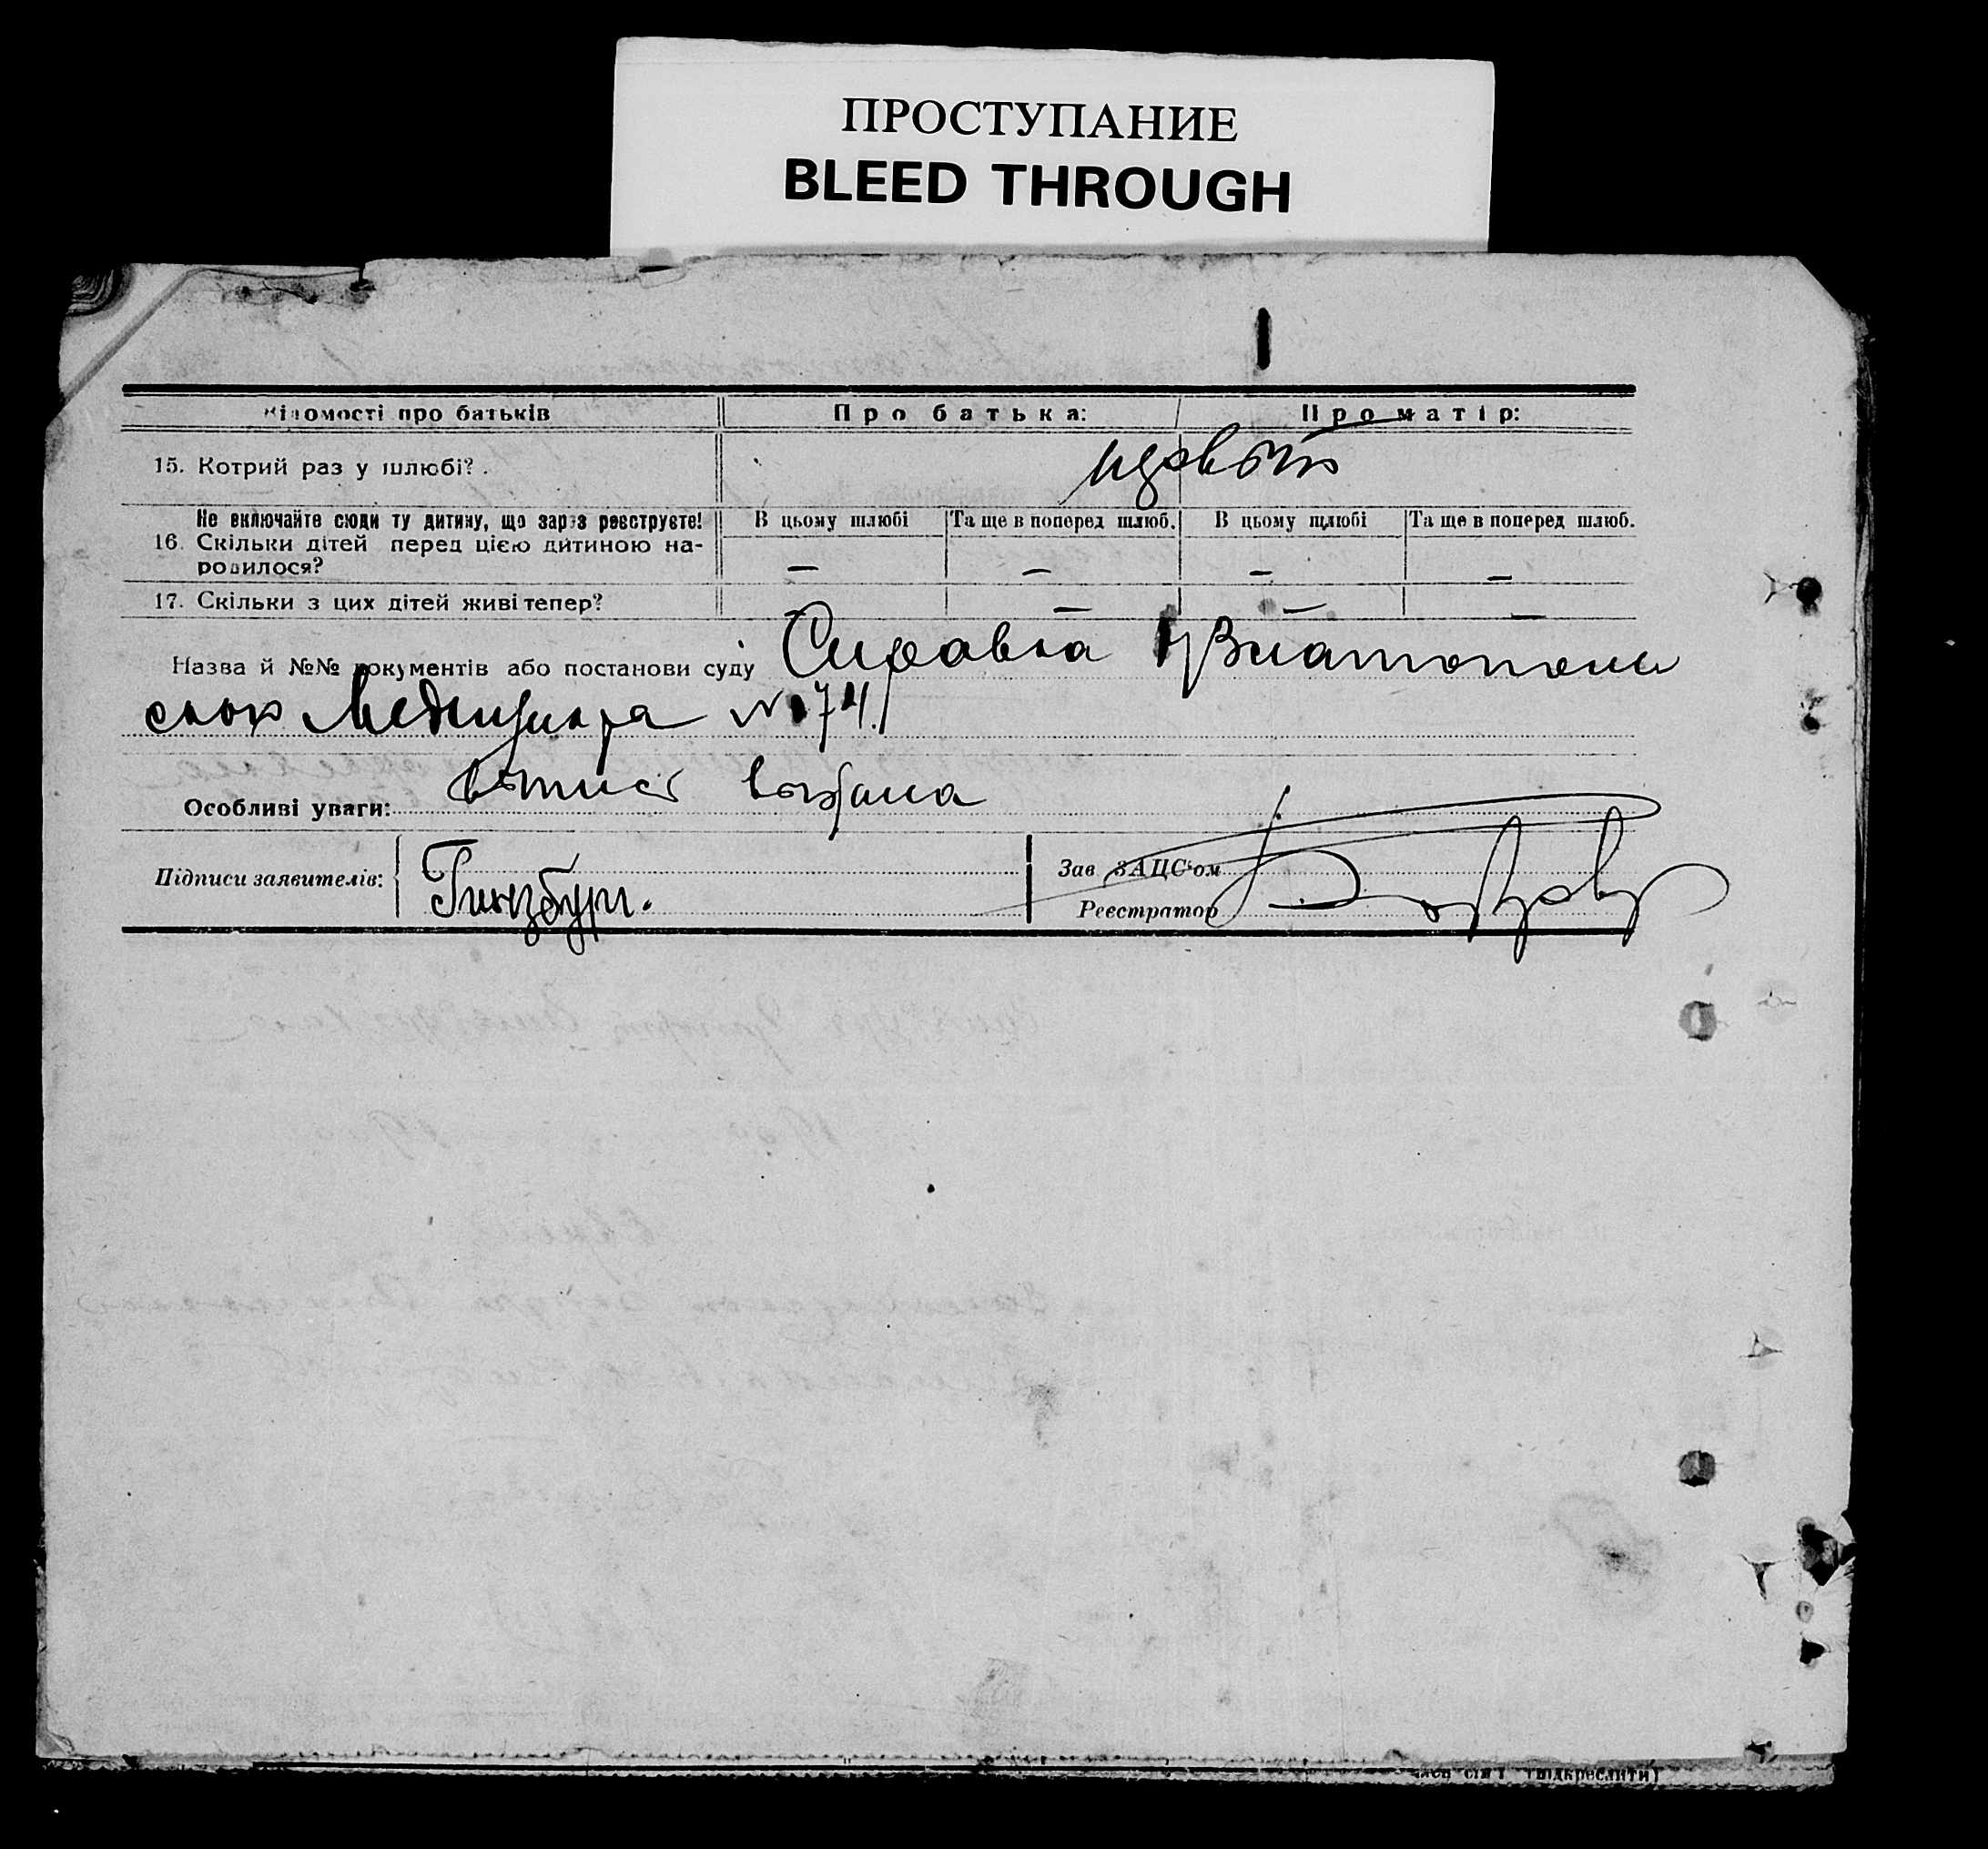 ПРОСТУПАНИЕ
BLEED THROUGH
Відомості про батьків Про батька: Про матір:
15. Котрий раз у шлюбі?. первый
Не включайте сюди ту дитину, що зараз реєструєте! В цьому шлюбі Та ще в поперед шлюб. В цьому шлюбі Та ще в поперед шлюб.
16. Скільки дітей перед цією дитиною на-
родилося? — — — —
17. Скільки з цих дітей живі тепер? — — — —
Назва й №№ документів або постанови суду Справка
Медпункта № 74
Особливі уваги: выпись выдана
Підписи заявителів: Гинзбург.
Зав ЗАЦС'ом
Реєстратор
(підкреслити)